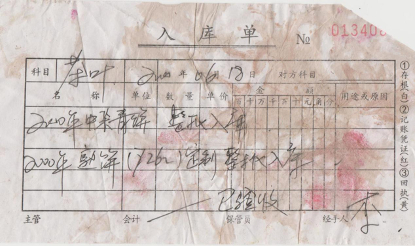 入库单 № 01340
科目 茶叶 2000年06月18日 对方科目
名称 单位 数量 单价 金额 用途或原因
百十万千百十元角分
2000年中茶青饼 整批入库
2000年 饼 定制 整批入库
已验收
主管 会计 保管员 经手人 李
①存根(白)②记账凭证(红)③回执(黄)